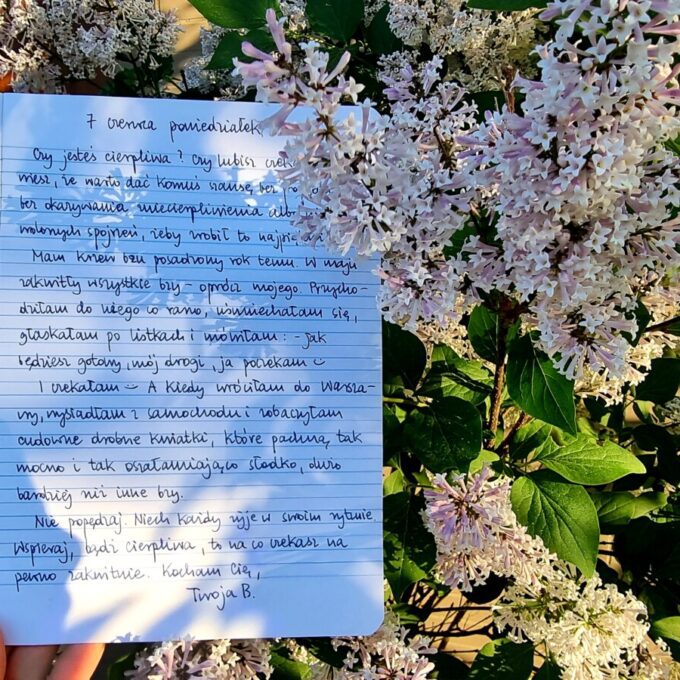 7 czerwca poniedziałek
Czy jesteś cierpliwa? Czy lubisz czeka
wiesz, że warto dać komuś szansę, bez
bez okazywania zniecierpliwienia albo
spojrzeń, żeby zrobił to
Mam krzew bzu posadzony rok temu. W maju
zakwitły wszystkie bzy - oprócz mojego. Przycho-
dziłam do niego co rano, uśmiechałam się,
głaskałam po listkach i mówiłam: - Jak
będziesz gotowy, mój drogi, ja poczekam
I czekałam A kiedy wróciłam do Warsza-
wy, wysiadłam z samochodu i zobaczyłam
cudowne drobne kwiatki, które pachną tak
mocno i tak oszałamiająco słodko, dużo
bardziej niż inne bzy.
Nie popędzaj. Niech każdy żyje w swoim rytmie.
Wspieraj, bądź cierpliwa, to na co czekasz na
pewno zakwitnie. Kocham Cię,
Twoja B.